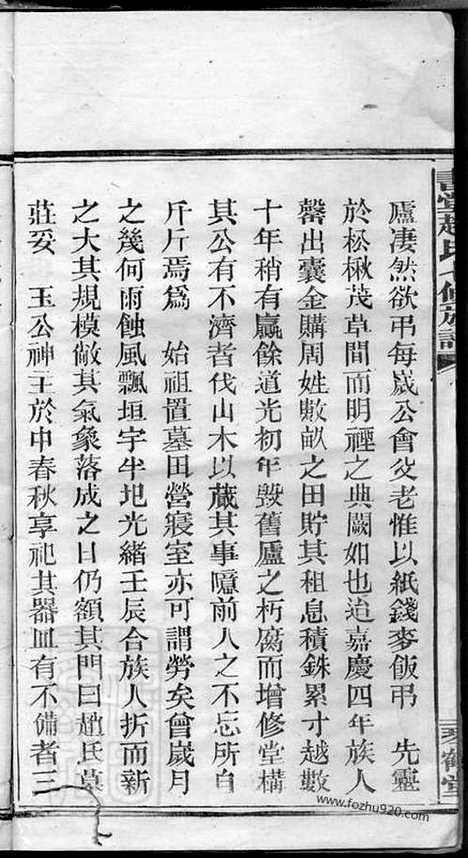 書堂趙氏七修族譜
琴鶴堂
廬凄然欲弔每嵗公會父老惟以紙錢麥飯弔　先靈
於松楸茂草間而明禋之典闕如也迨嘉慶四年族人
罄出囊金購周姓數畝之田貯其租息積銖累寸越數
十年稍有贏餘道光初年毀舊廬之朽腐而增修堂構
其公有不濟者伐山木以蕆其事噫前人之不忘所自
斤斤焉為　始祖置墓田營寢室亦可謂勞矣曾嵗月
之幾何雨蝕風飄垣宇半圯光緒壬辰合族人折而新
之大其規模敞其氣象落成之日仍額其門曰趙氏墓
莊妥　玉公神主於中春秋享祀其器皿有不備者三
www.fozhu920.com